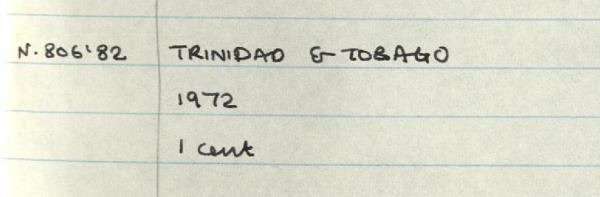 N.806'82 TRINIDAD & TOBAGO
1972
1 cent